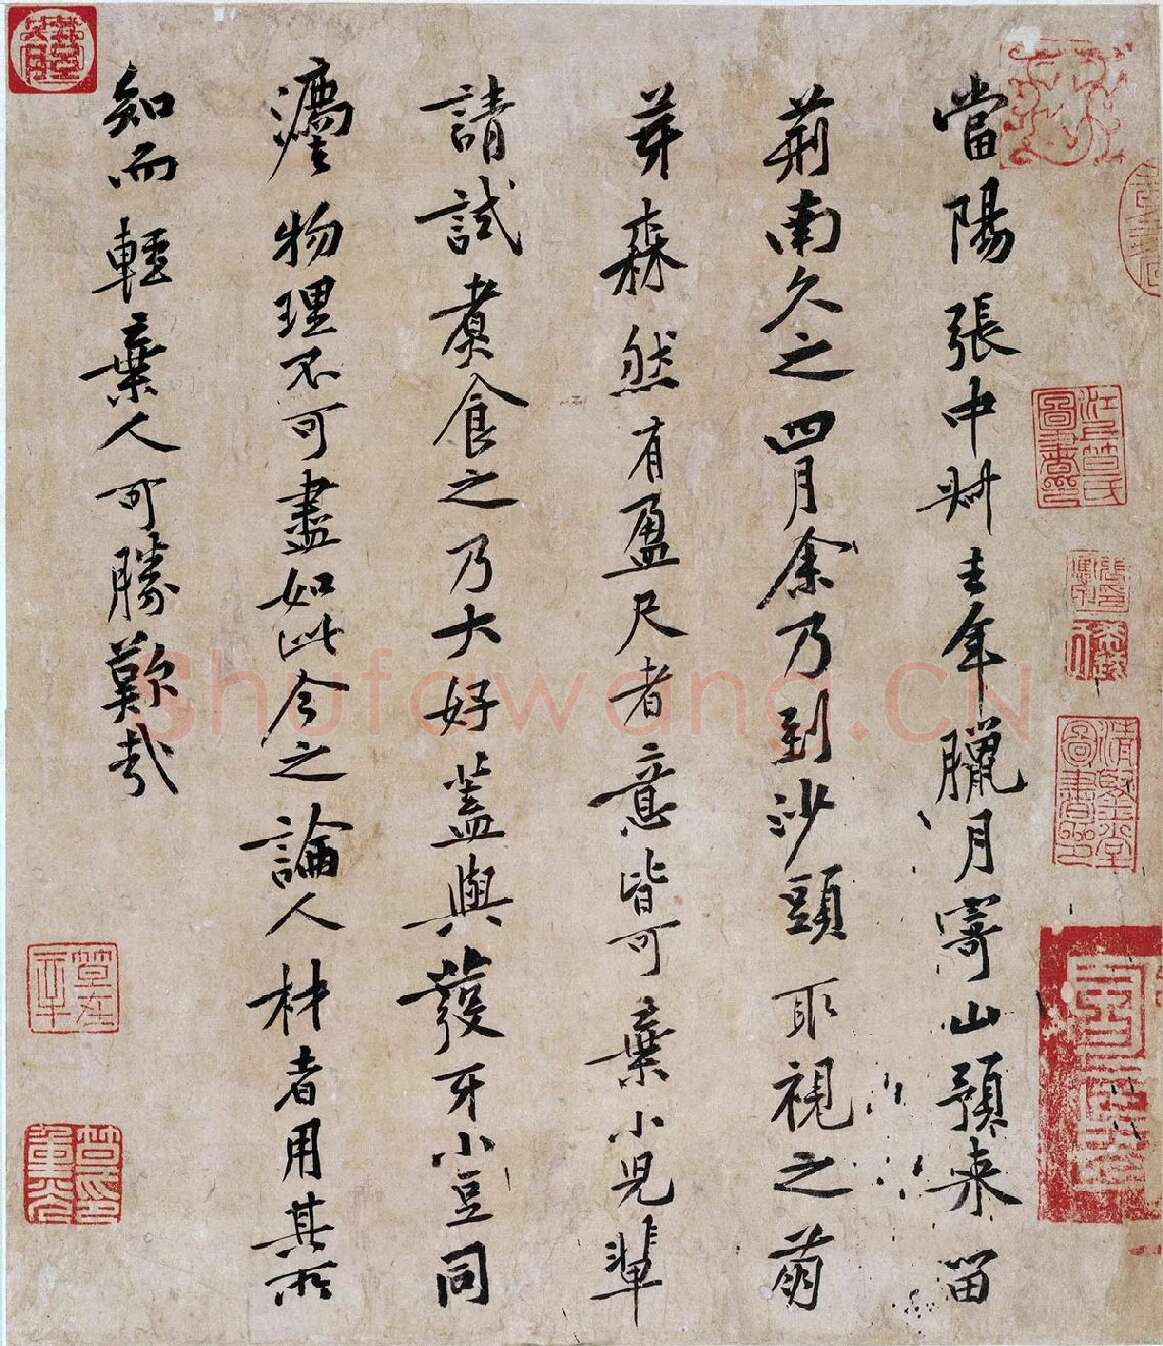 當陽張中叔去年臘月寄山預來留
荊南久之四月余乃到沙頭取視之萌
芽森然有盈尺者意皆可棄小兒輩
請試煮食之乃大好蓋與發牙小豆同
法物理不可盡如此今之論人材者用其所
知而輕棄人可勝歎哉
shufawang.CN